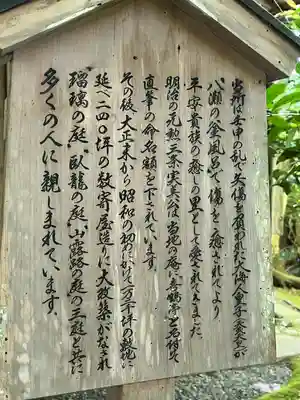 当所は壬申の乱で矢傷を負われた大海人皇子(天武天皇)が
八瀬の釜風呂で傷を癒されてより
平安貴族の癒しの里として愛されてきました。
明治の元勲三条実美公は当地の庵に「喜鶴亭」と名付けて
直筆の命名額を下されています。
その後、大正末から昭和の初めにかけて一万二千坪の敷地に
延べ二四〇坪の数寄屋造りに大改築がなされ
「瑠璃の庭」「臥龍の庭」「山露路の庭」の三庭と共に
多くの人に親しまれています。